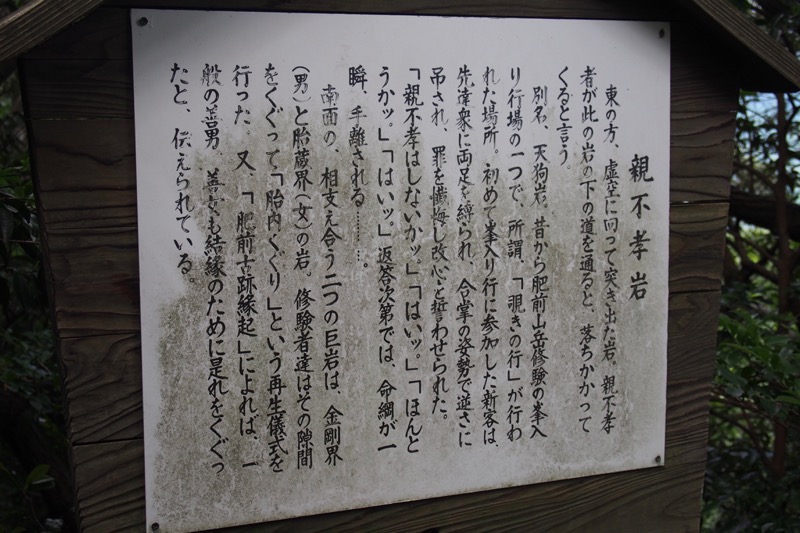 親不孝岩
東の方、虚空に向って突き出た岩。親不孝
者が此の岩の下の道を通ると、落ちかかって
くると言う。
別名、天狗岩。昔から肥前山岳修験の峯入
り行場の一つで、所謂、「覗きの行」が行わ
れた場所。初めて峯入り行に参加した新客は、
先達衆に両足を縛られ、合掌の姿勢で逆さに
吊され、罪を懺悔し改心を誓わせられた。
「親不孝はしないかッ。」「はいッ。」「ほんと
うかッ。」「はいッ。」返答次第では、命綱が一
瞬、手離される………。
南面の、相支え合う二つの巨岩は、金剛界
(男)と胎蔵界(女)の岩。修験者達はその隙間
をくぐって「胎内くぐり」という再生儀式を
行った。又、「肥前古跡縁起」によれば、一
般の善男、善女も結縁のために是れをくぐっ
たと、伝えられている。